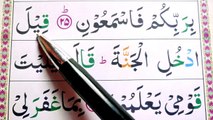 بِرَبِّكُمْ فَاسْمَعُوْنِ ﴿۲۵﴾ قِيْلَ
ادْخُلِ الْجَنَّةَ ؕ قَالَ يٰلَيْتَ
قَوْمِيْ يَعْلَمُوْ بِمَا غَفَرَ لِيْ